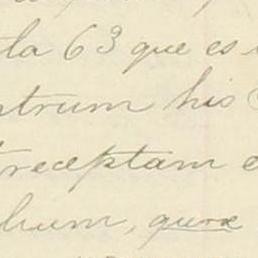 la 63 que es
trum his
receptam
hum, quæ